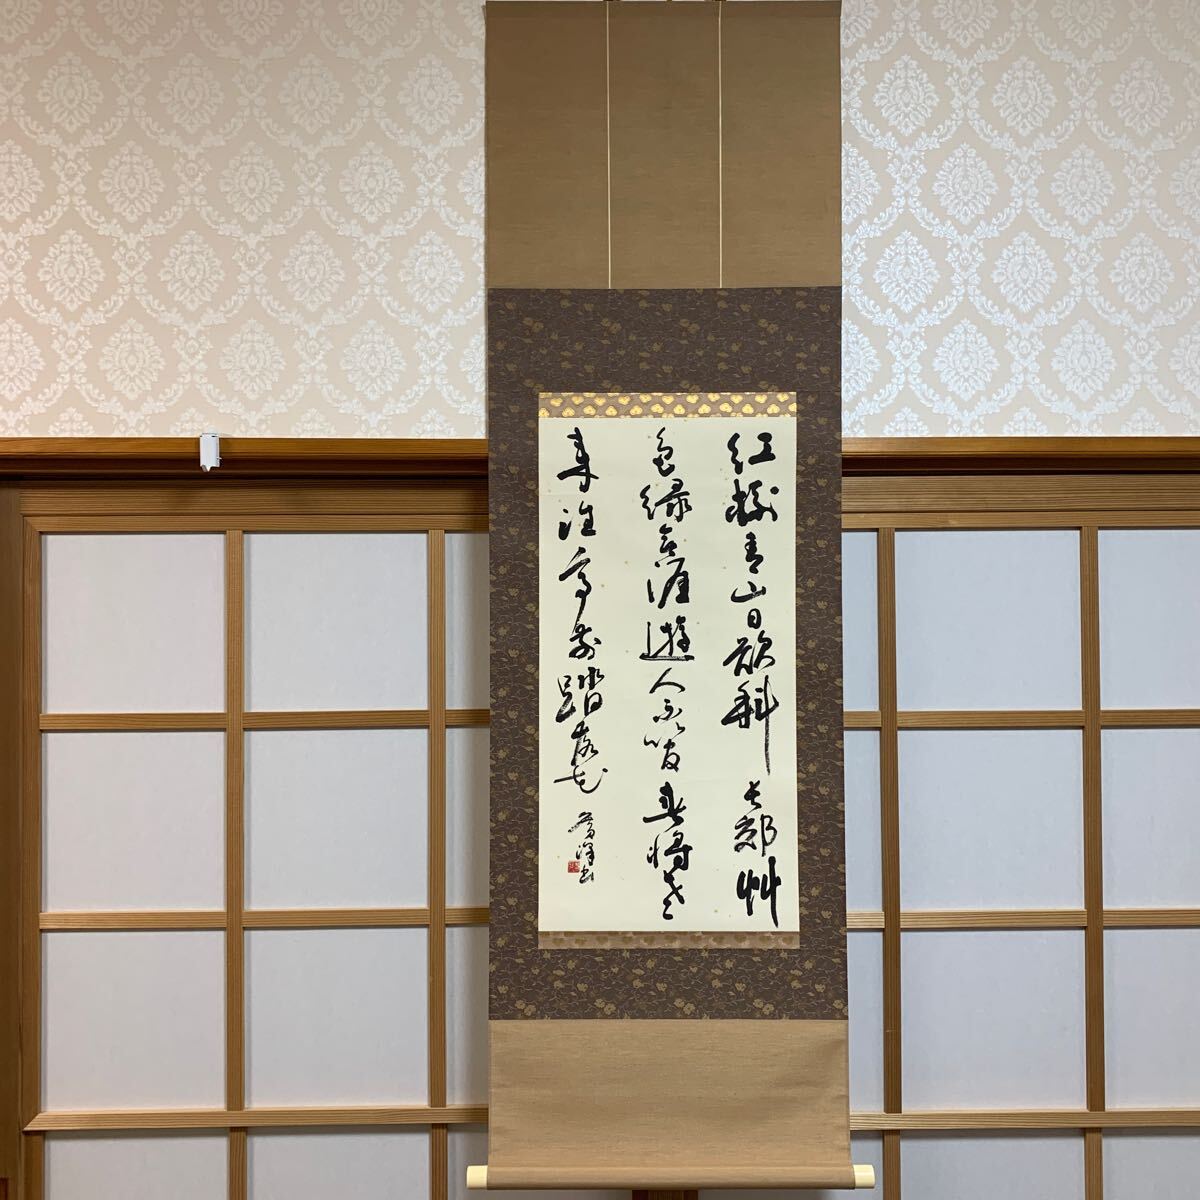 紅樹青山日欲斜長郊艸
色緑無涯遊人不管春将老
来往亭前踏落花